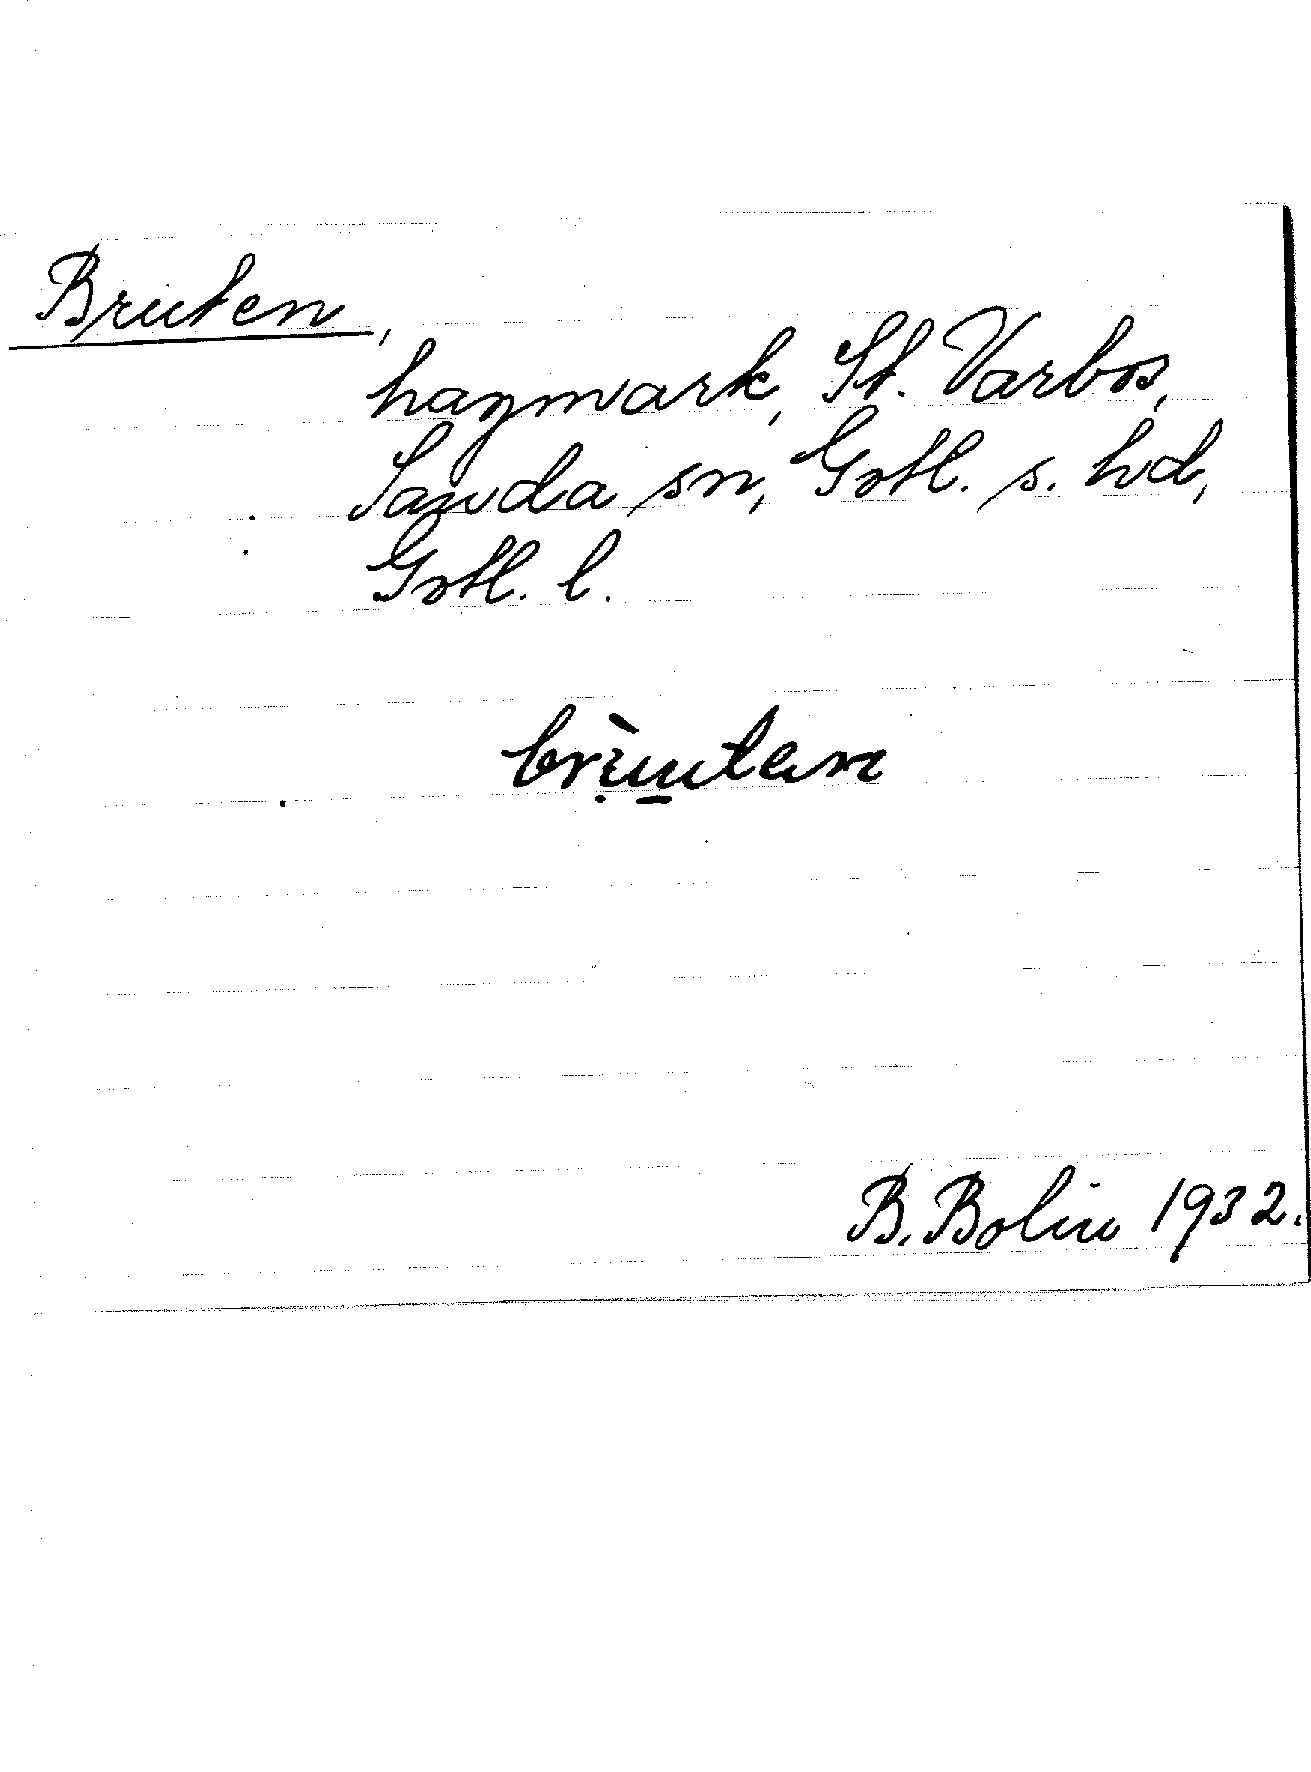 Bruten,
hagmark, St. Varbos,
Sanda sn, Gotl. s. hd,
Gotl. l.
B. Bolin 1932.